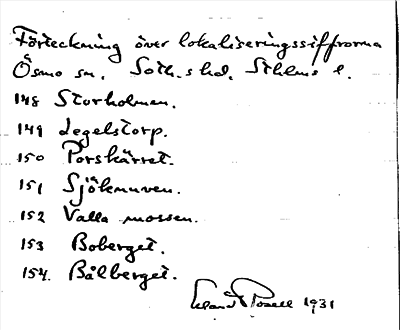 Förteckning över lokaliseringssiffrorna
Ösmo sn. Soth.s hd. Sthlms l.
148 Storholmen.
149 Legelstorp.
150 Porskärret.
151 Sjöknuven.
152 Valla mossen.
153 Boberget.
154. Bålberget.
1931